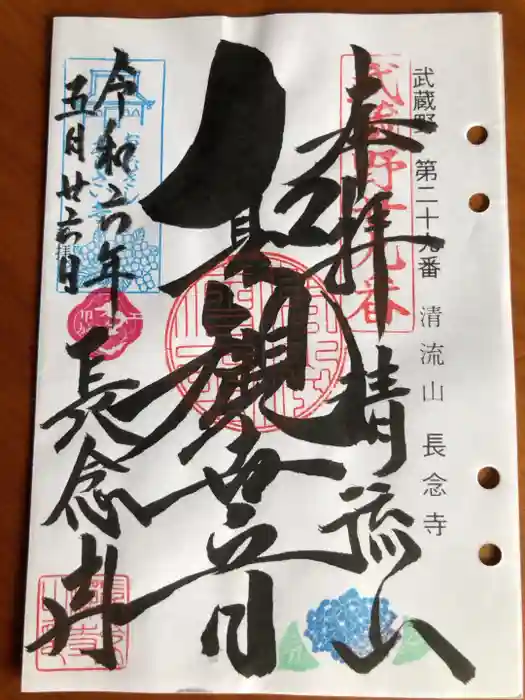 武蔵野 第二十九番 清流山 長念寺
武蔵野廿九番
奉拝 清流山
聖観世音
令和六年
五月廿六日
拝
長念寺